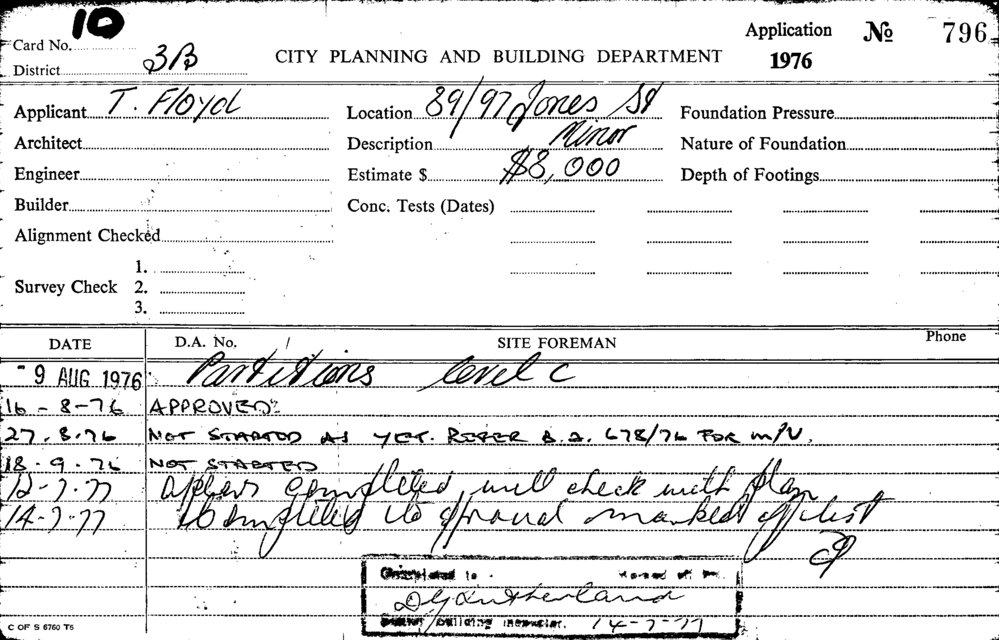 10
Card No.
District 3B
CITY PLANNING AND BUILDING DEPARTMENT
Application No 796
1976
Applicant T. Floyd
Location 89/97 Jones St
Foundation Pressure
Architect
Description Minor
Nature of Foundation
Engineer
Estimate $ $8,000
Depth of Footings
Builder
Conc. Tests (Dates)
Alignment Checked
Survey Check 1.
2.
3.
DATE D.A. No. SITE FOREMAN Phone
9 AUG 1976 Partitions level C
16-8-76 APPROVED
27.8.76 NOT STARTED AS YET. REFER B.A. 678/76 FOR M/V.
18.9.76 NOT STARTED
12-7-77 appears completed will check with plan
14-7-77 Completed to approval marked off list
Completed to
DG Sutherland
building inspector. 14-7-77
C OF S 6760 T5